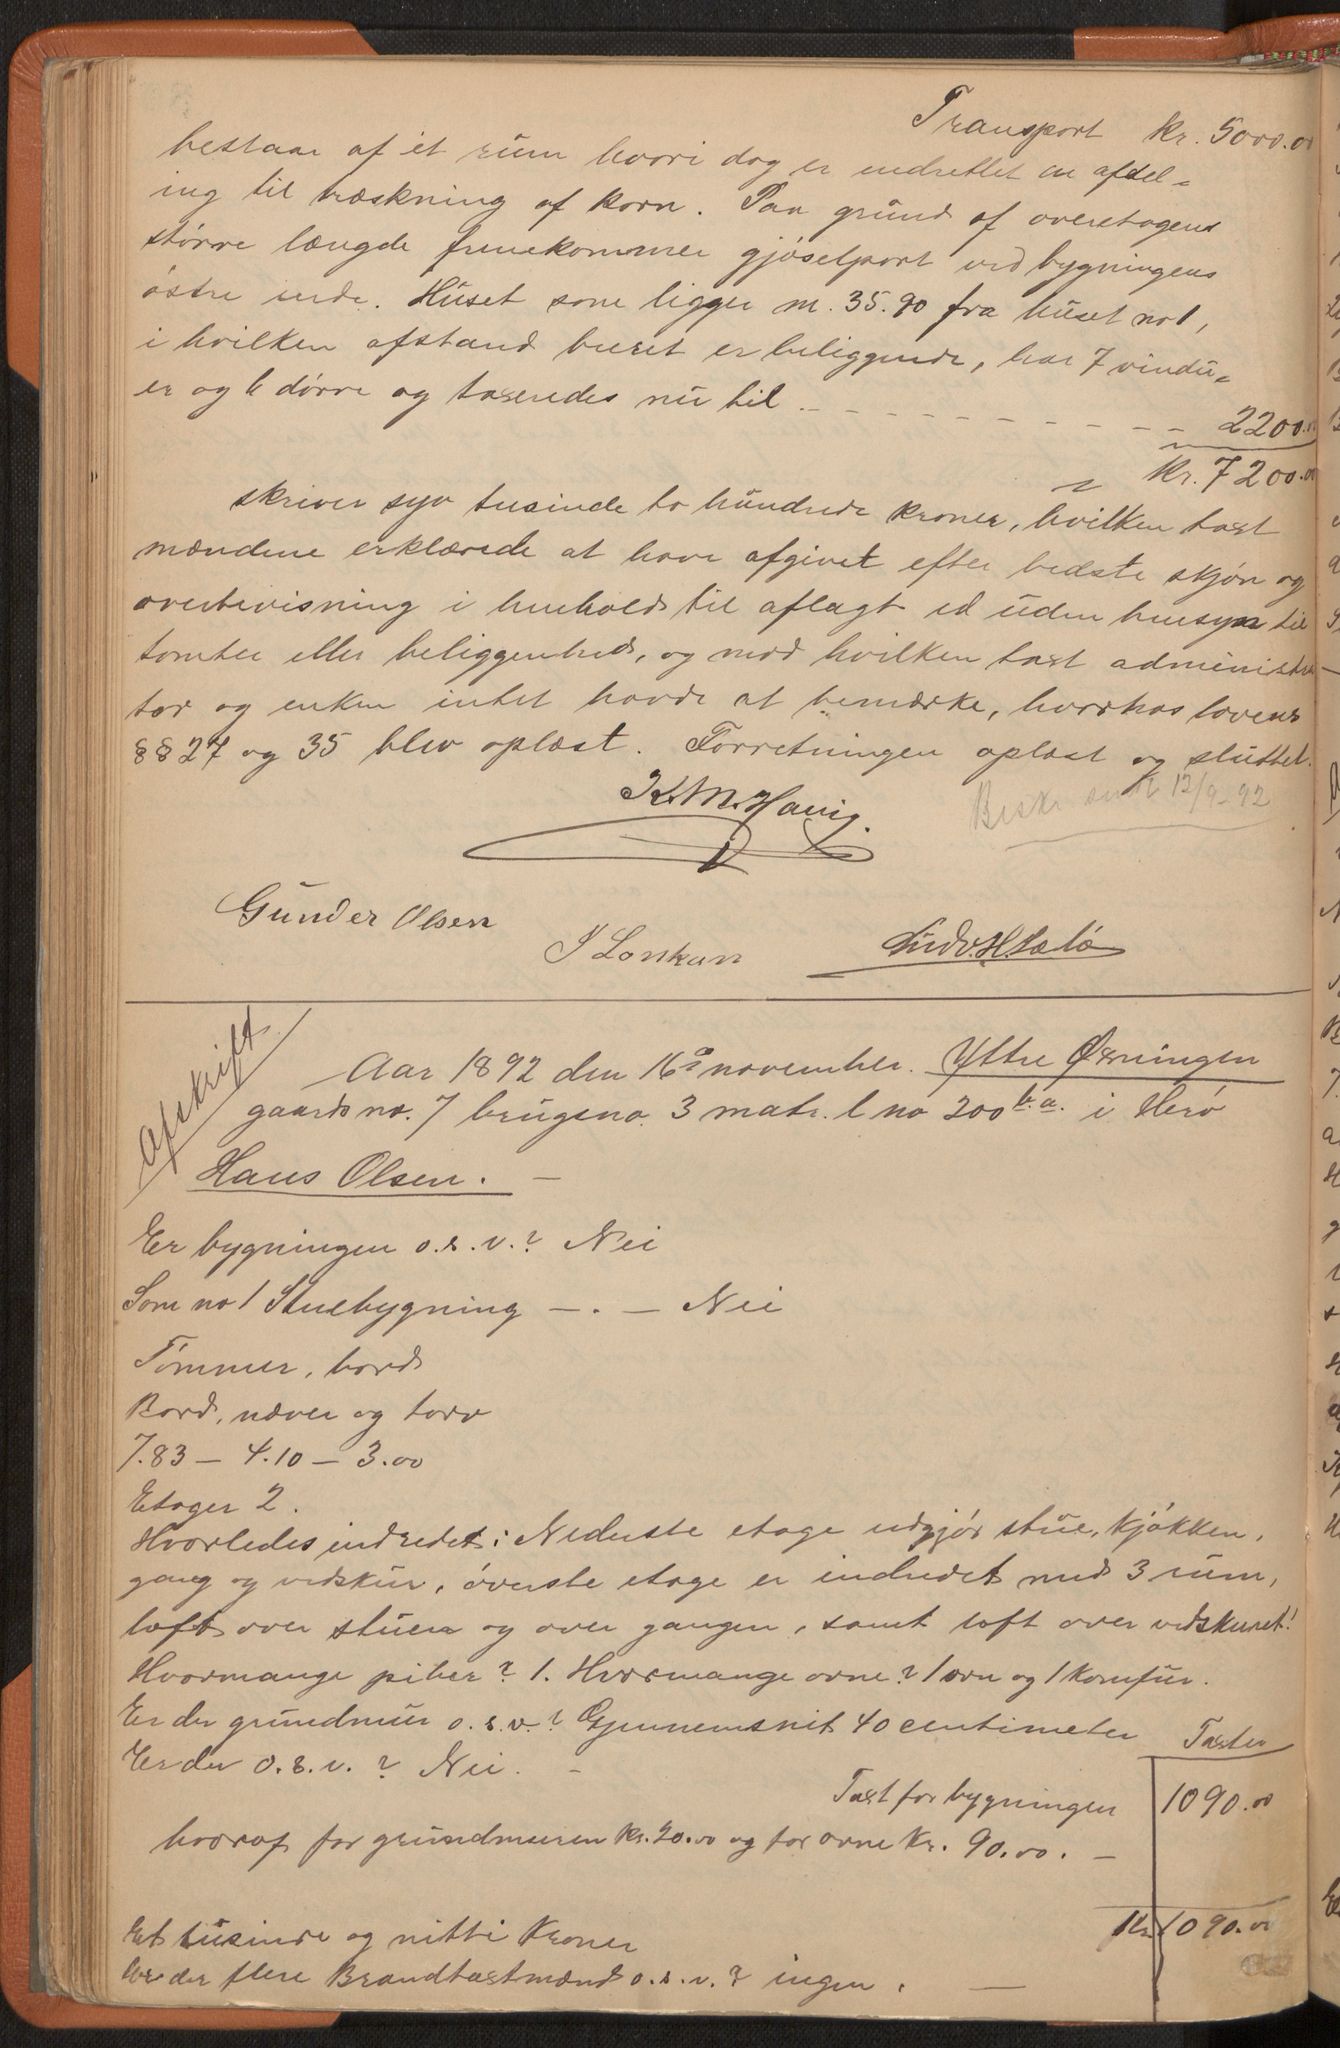 Transport kr. 5000.00
bestaar af ét rum hvori dog er indrettet en afdel-
ing til træskning af korn. Paa grund af overetagens
større længde fremkommer gjødselport ved bygningens
østre ende. Huset som ligger m. 35.90 fra huset no 1,
i hvilken afstand buret er beliggende, har 7 vindu-
er og 6 dørre og taxeredes nu til - - - - - - - - - - 2200.00
kr. 7200.00
skriver syv tusinde to hundrede kroner, hvilken taxt
mændene erklærede at have afgivet efter bedste skjøn og
overbevisning i henhold til aflagt ed uden hensyn til
tomter eller beliggenhed, og mod hvilken taxt administra
tor og enken intet havde at bemærke, hvorhos lovens
§§ 27 og 35 blev oplæst. Forretningen oplæst og sluttet.
K. M. Havig.
Besk. sendt 12/9-92
Gunder Olsen
J Lonkan
Ludv. H. Sælø
Afskrift
Aar 1892 den 16de november. Yttre Øxningen
gaards no. 7 brugsno. 3 matr. l no 200 b.a. i Herø
Hans Olsen. -
Er bygningen o.s.v.? Nei
Som no 1 Stuebygning - . - Nei
Tømmer, bord
Bord, næver og torv
7.83 - 4.10 - 3.00
Etager 2.
Hvorledes indredet: Nederste etage udgjør stue, kjøkken,
gang og vedskur, øverste etage er indredet med 3 rum,
loft over stuen og over gangen, samt loft over vedskuret!
Hvormange piber? 1. Hvormange ovne? 1 ovn og 1 komfur.
Er der grundmur o.s.v.? Gjennemsnit 40 centimeter
Taxter
Er der o.s.v.? Nei. -
Taxt for bygningen 1090.00
hvoraf for grundmuren kr. 20.00 og for ovne kr. 90.00. -
Et tusinde og nitti Kroner
Kr 1090.00
Er der flere Brandtaxtmænd o.s.v.? ingen. -